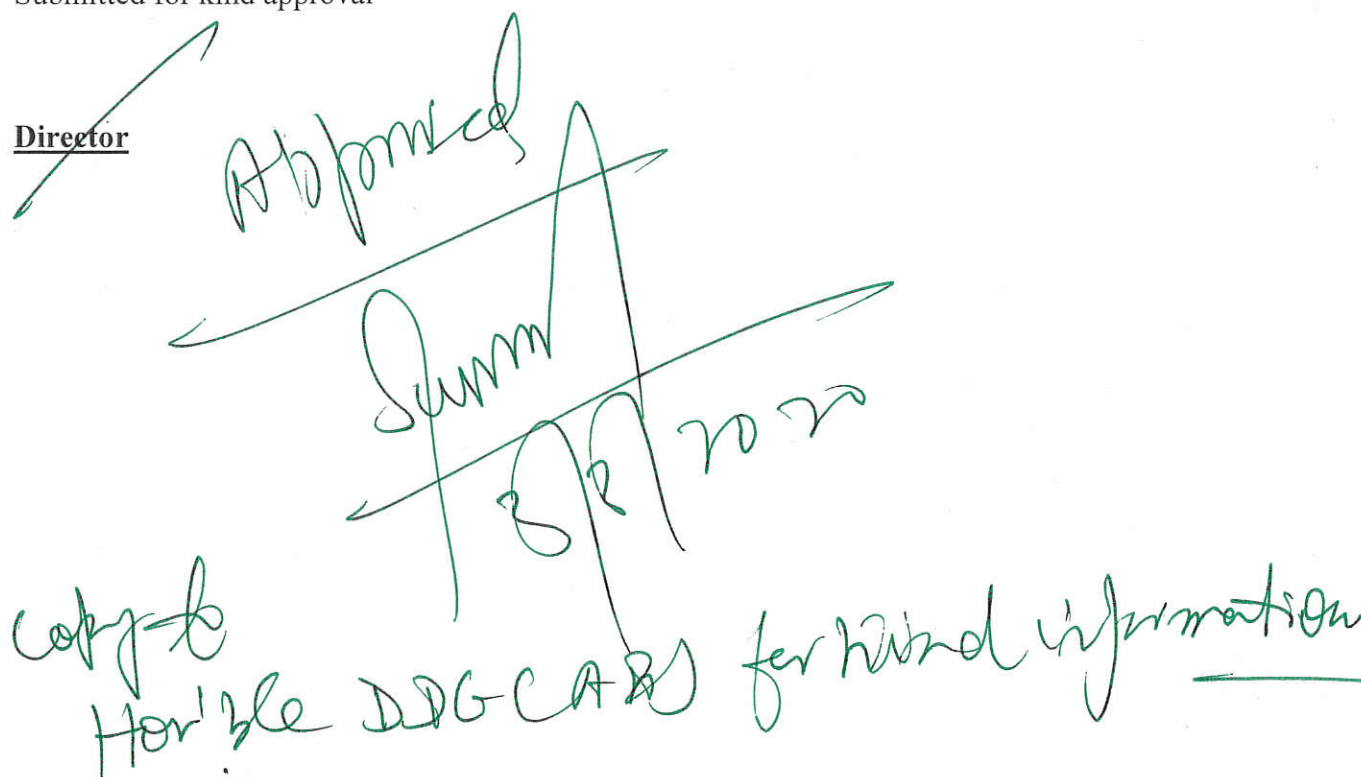 Submitted for kind approval
Director
Approved
2020
Copy to
Hon'ble DDG (AE) for kind information